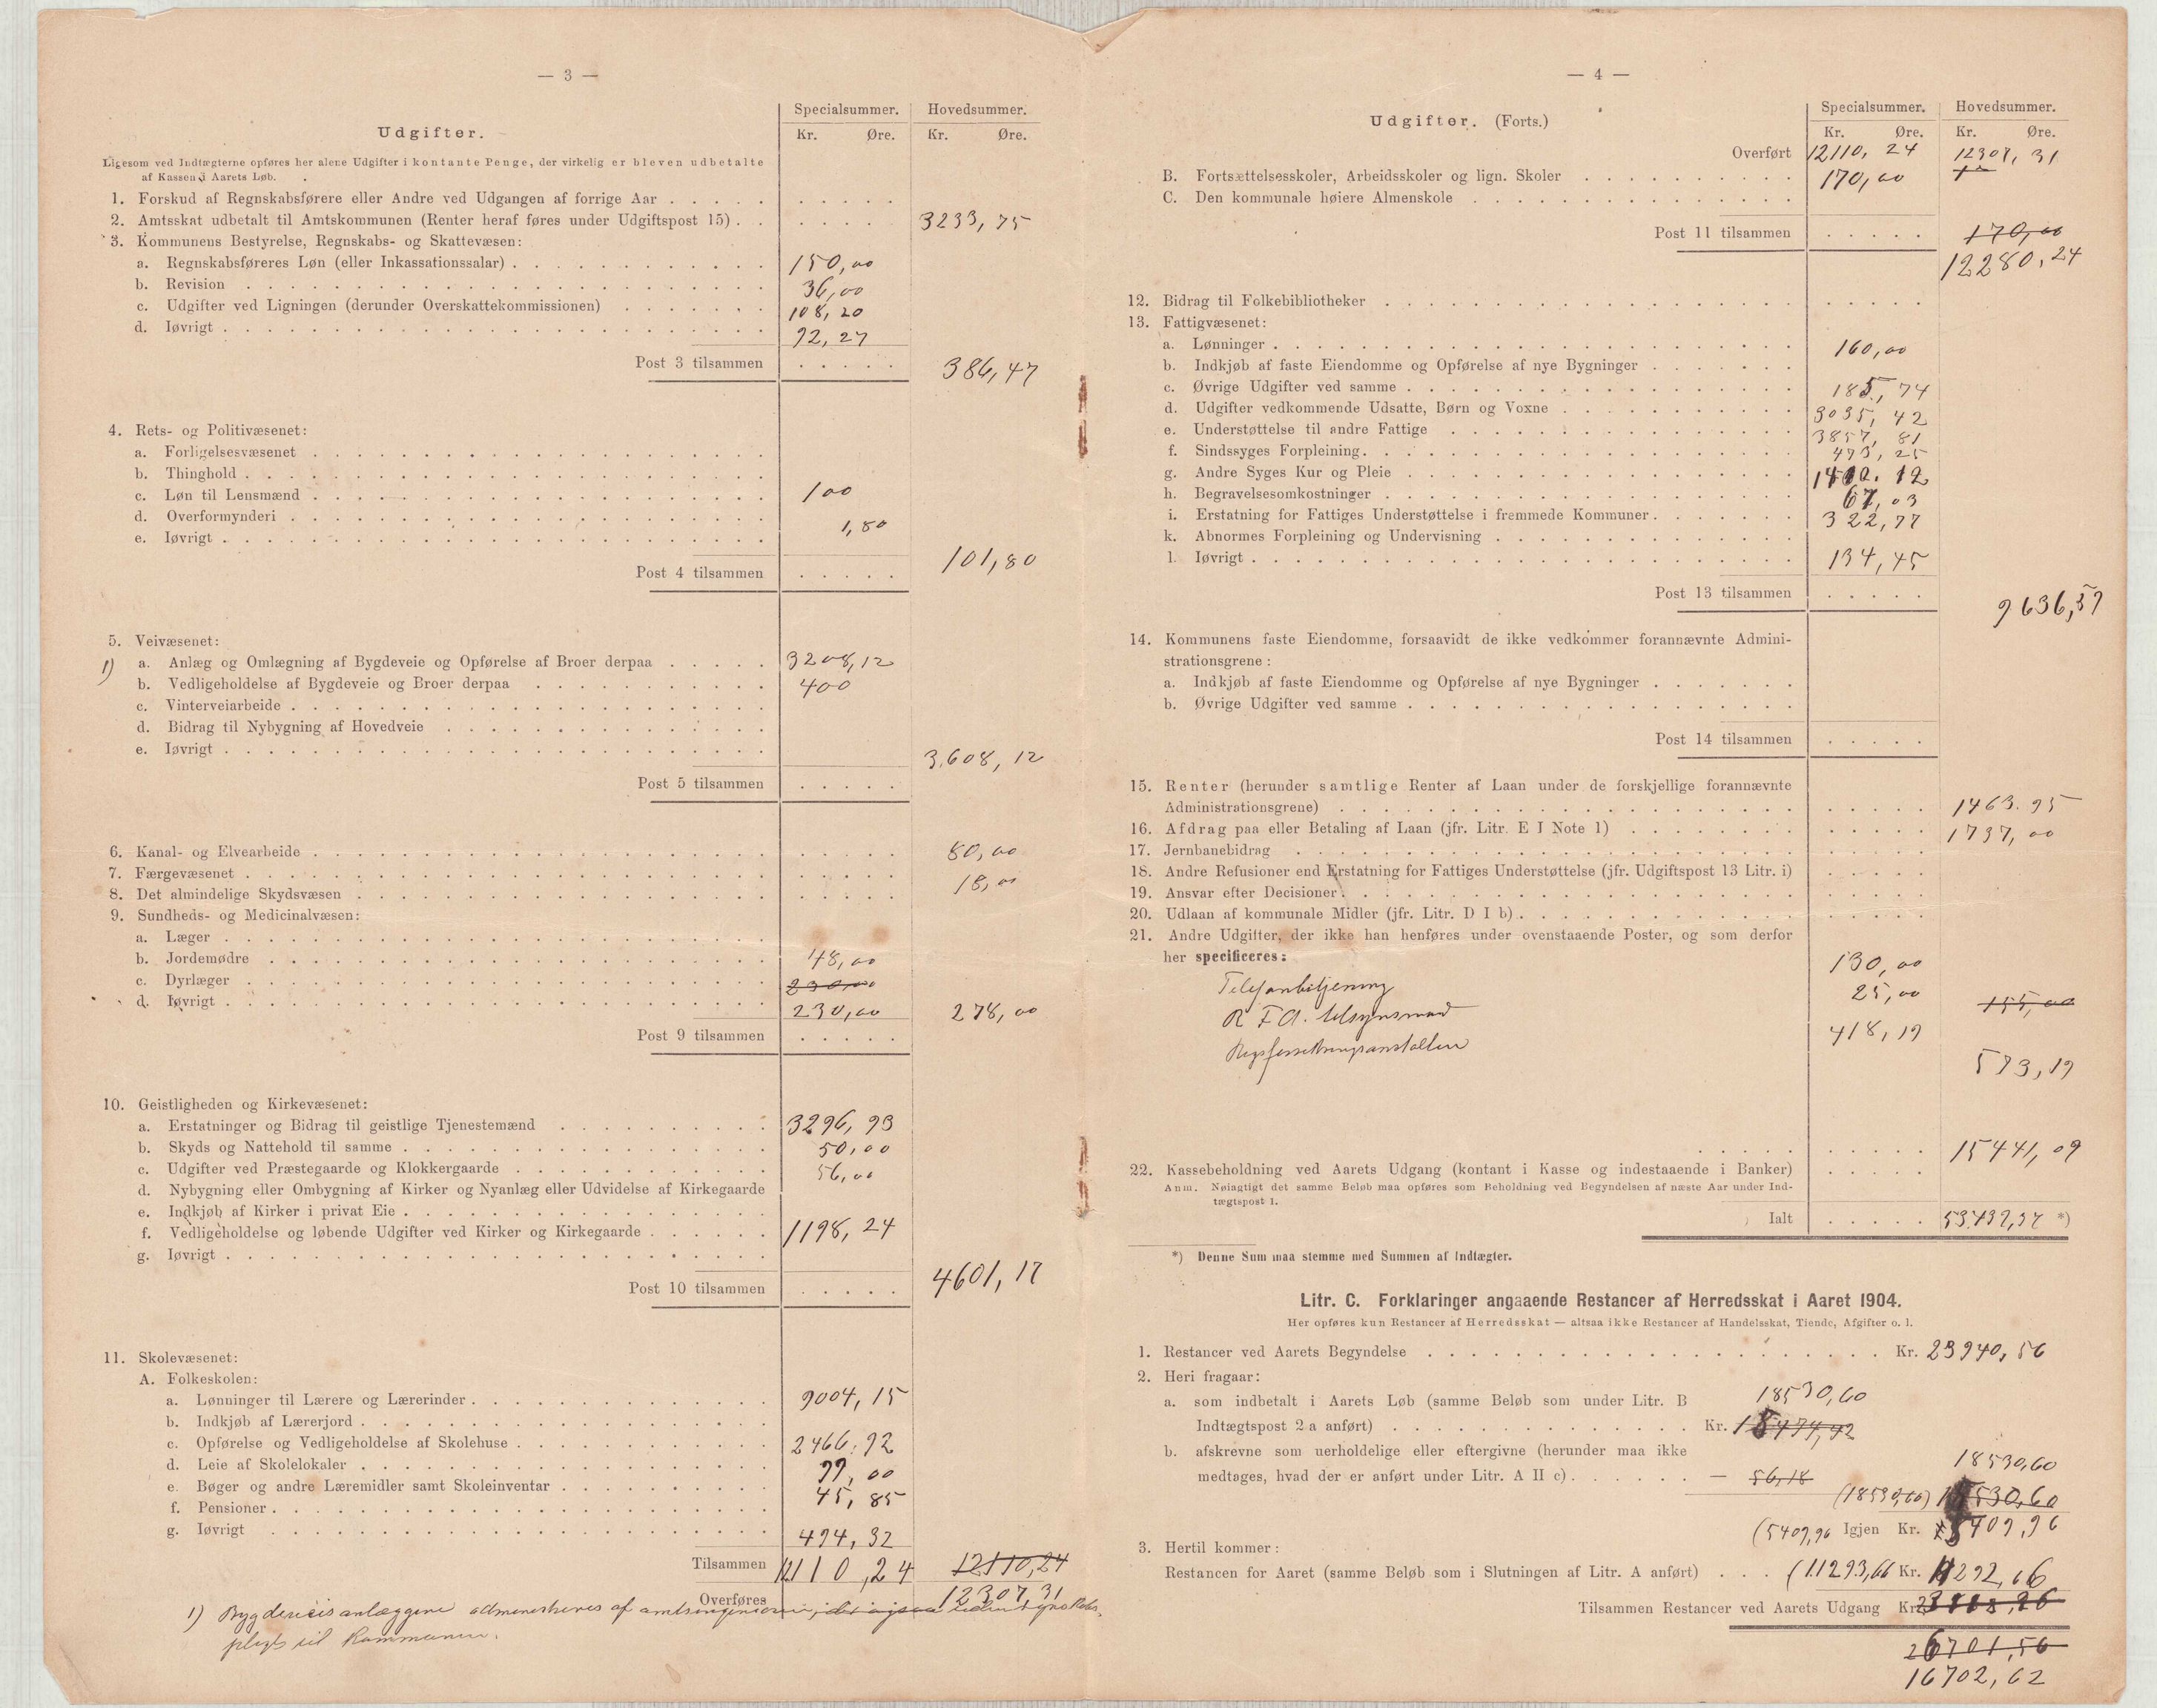 — 3 —
Udgifter.
Specialsummer. Hovedsummer.
Kr. Øre. Kr. Øre.
Ligesom ved Indtægterne opføres her alene Udgifter i kontante Penge, der virkelig er bleven udbetalte
af Kassen i Aarets Løb.
1. Forskud af Regnskabsførere eller Andre ved Udgangen af forrige Aar
2. Amtsskat udbetalt til Amtskommunen (Renter heraf føres under Udgiftspost 15) . . 3233,75
3. Kommunens Bestyrelse, Regnskabs- og Skattevæsen:
a. Regnskabsføreres Løn (eller Inkassationssalar) . 150,00
b. Revision 36,00
c. Udgifter ved Ligningen (derunder Overskattekommissionen) 108,20
d. Iøvrigt . 92,27
Post 3 tilsammen 386,47
4. Rets- og Politivæsenet:
a. Forligelsesvæsenet
b. Thinghold
c. Løn til Lensmænd 100
d. Overformynderi 1,80
e. Iøvrigt
Post 4 tilsammen 101,80
5. Veivæsenet:
1) a. Anlæg og Omlægning af Bygdeveie og Opførelse af Broer derpaa 3208,12
b. Vedligeholdelse af Bygdeveie og Broer derpaa 400
c. Vinterveiarbeide
d. Bidrag til Nybygning af Hovedveie
e. Iøvrigt
3.608,12
Post 5 tilsammen
6. Kanal- og Elvearbeide 80,00
7. Færgevæsenet 18,00
8. Det almindelige Skydsvæsen
9. Sundheds- og Medicinalvæsen:
a. Læger
b. Jordemødre 48,00
c. Dyrlæger 230,00
d. Iøvrigt 230,00 278,00
Post 9 tilsammen
10. Geistligheden og Kirkevæsenet:
a. Erstatninger og Bidrag til geistlige Tjenestemænd 3296,93
b. Skyds og Nattehold til samme 50,00
c. Udgifter ved Præstegaarde og Klokkergaarde 56,00
d. Nybygning eller Ombygning af Kirker og Nyanlæg eller Udvidelse af Kirkegaarde
e. Indkjøb af Kirker i privat Eie
f. Vedligeholdelse og løbende Udgifter ved Kirker og Kirkegaarde 1198,24
g. Iøvrigt
Post 10 tilsammen 4601,17
11. Skolevæsenet:
A. Folkeskolen:
a. Lønninger til Lærere og Lærerinder 9004,15
b. Indkjøb af Lærerjord
c. Opførelse og Vedligeholdelse af Skolehuse 2466,92
d. Leie af Skolelokaler 99,00
e. Bøger og andre Læremidler samt Skoleinventar 45,85
f. Pensioner
g. Iøvrigt 494,32
Tilsammen 12110,24 12110,24
Overføres 12307,31
1) Bygdeveisanlæggene administreres af amtsingeniøren,
pligt til Kommunen.
— 4 —
Udgifter. (Forts.)
Specialsummer. Hovedsummer.
Kr. Øre. Kr. Øre.
Overført 12110,24 12307,31
B. Fortsættelsesskoler, Arbeidsskoler og lign. Skoler 170,00
C. Den kommunale høiere Almenskole
Post 11 tilsammen 170,00
12280,24
12. Bidrag til Folkebibliotheker
13. Fattigvæsenet:
a. Lønninger 160,00
b. Indkjøb af faste Eiendomme og Opførelse af nye Bygninger
c. Øvrige Udgifter ved samme 185,74
d. Udgifter vedkommende Udsatte, Børn og Voxne 3035,42
e. Understøttelse til andre Fattige 3857,81
f. Sindssyges Forpleining 473,25
g. Andre Syges Kur og Pleie 1400.12
h. Begravelsesomkostninger 67,03
i. Erstatning for Fattiges Understøttelse i fremmede Kommuner 322,77
k. Abnormes Forpleining og Undervisning
l. Iøvrigt 134,45
Post 13 tilsammen 9636,59
14. Kommunens faste Eiendomme, forsaavidt de ikke vedkommer forannævnte Admini-
strationsgrene:
a. Indkjøb af faste Eiendomme og Opførelse af nye Bygninger
b. Øvrige Udgifter ved samme
Post 14 tilsammen
15. Renter (herunder samtlige Renter af Laan under de forskjellige forannævnte
Administrationsgrene) 1463.95
16. Afdrag paa eller Betaling af Laan (jfr. Litr. E I Note 1) 1737,00
17. Jernbanebidrag
18. Andre Refusioner end Erstatning for Fattiges Understøttelse (jfr. Udgiftspost 13 Litr. i)
19. Ansvar efter Decisioner
20. Udlaan af kommunale Midler (jfr. Litr. D I b)
21. Andre Udgifter, der ikke han henføres under ovenstaaende Poster, og som derfor
her specificeres:
Telefonbetjening 130,00
R F A. tilsynsmand 25,00 155,00
418,19
573,19
15441,09
22. Kassebeholdning ved Aarets Udgang (kontant i Kasse og indestaaende i Banker)
Anm. Nøiagtigt det samme Beløb maa opføres som Beholdning ved Begyndelsen af næste Aar under Ind-
tægtspost 1.
Ialt 53.437,37 *)
*) Denne Sum maa stemme med Summen af Indtægter.
Litr. C. Forklaringer angaaende Restancer af Herredsskat i Aaret 1904.
Her opføres kun Restancer af Herredsskat — altsaa ikke Restancer af Handelsskat, Tiende, Afgifter o. l.
1. Restancer ved Aarets Begyndelse Kr. 23940,56
2. Heri fragaar:
a. som indbetalt i Aarets Løb (samme Beløb som under Litr. B 18530,60
Indtægtspost 2 a anført) Kr. 18474,42
b. afskrevne som uerholdelige eller eftergivne (herunder maa ikke
medtages, hvad der er anført under Litr. A II c) — 56,18 18530,60
(18530,60) 18530,60
(5409,96 Igjen Kr. 5409,96
3. Hertil kommer:
Restancen for Aaret (samme Beløb som i Slutningen af Litr. A anført) (11293,66 Kr. 11292,66
Tilsammen Restancer ved Aarets Udgang Kr.
26701,56
16702,62